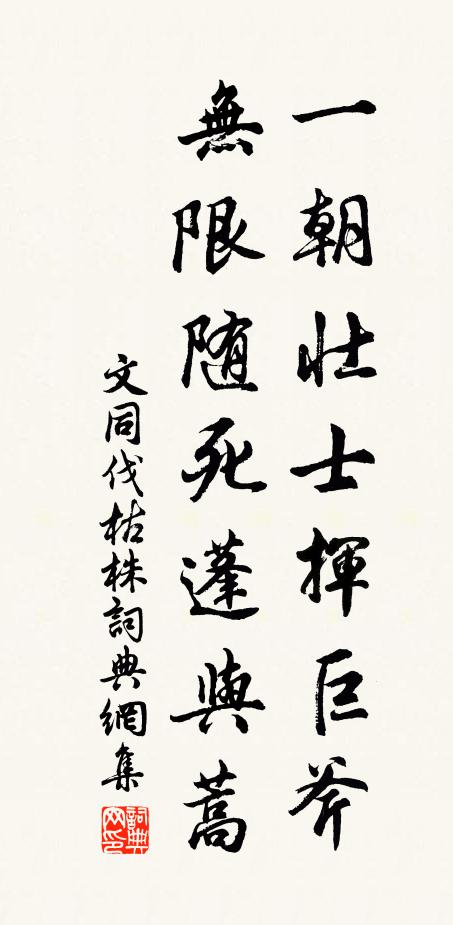 一朝壯士揮巨斧
無限随死蓬與蒿
文同伐枯株詞典網集
詞典网印